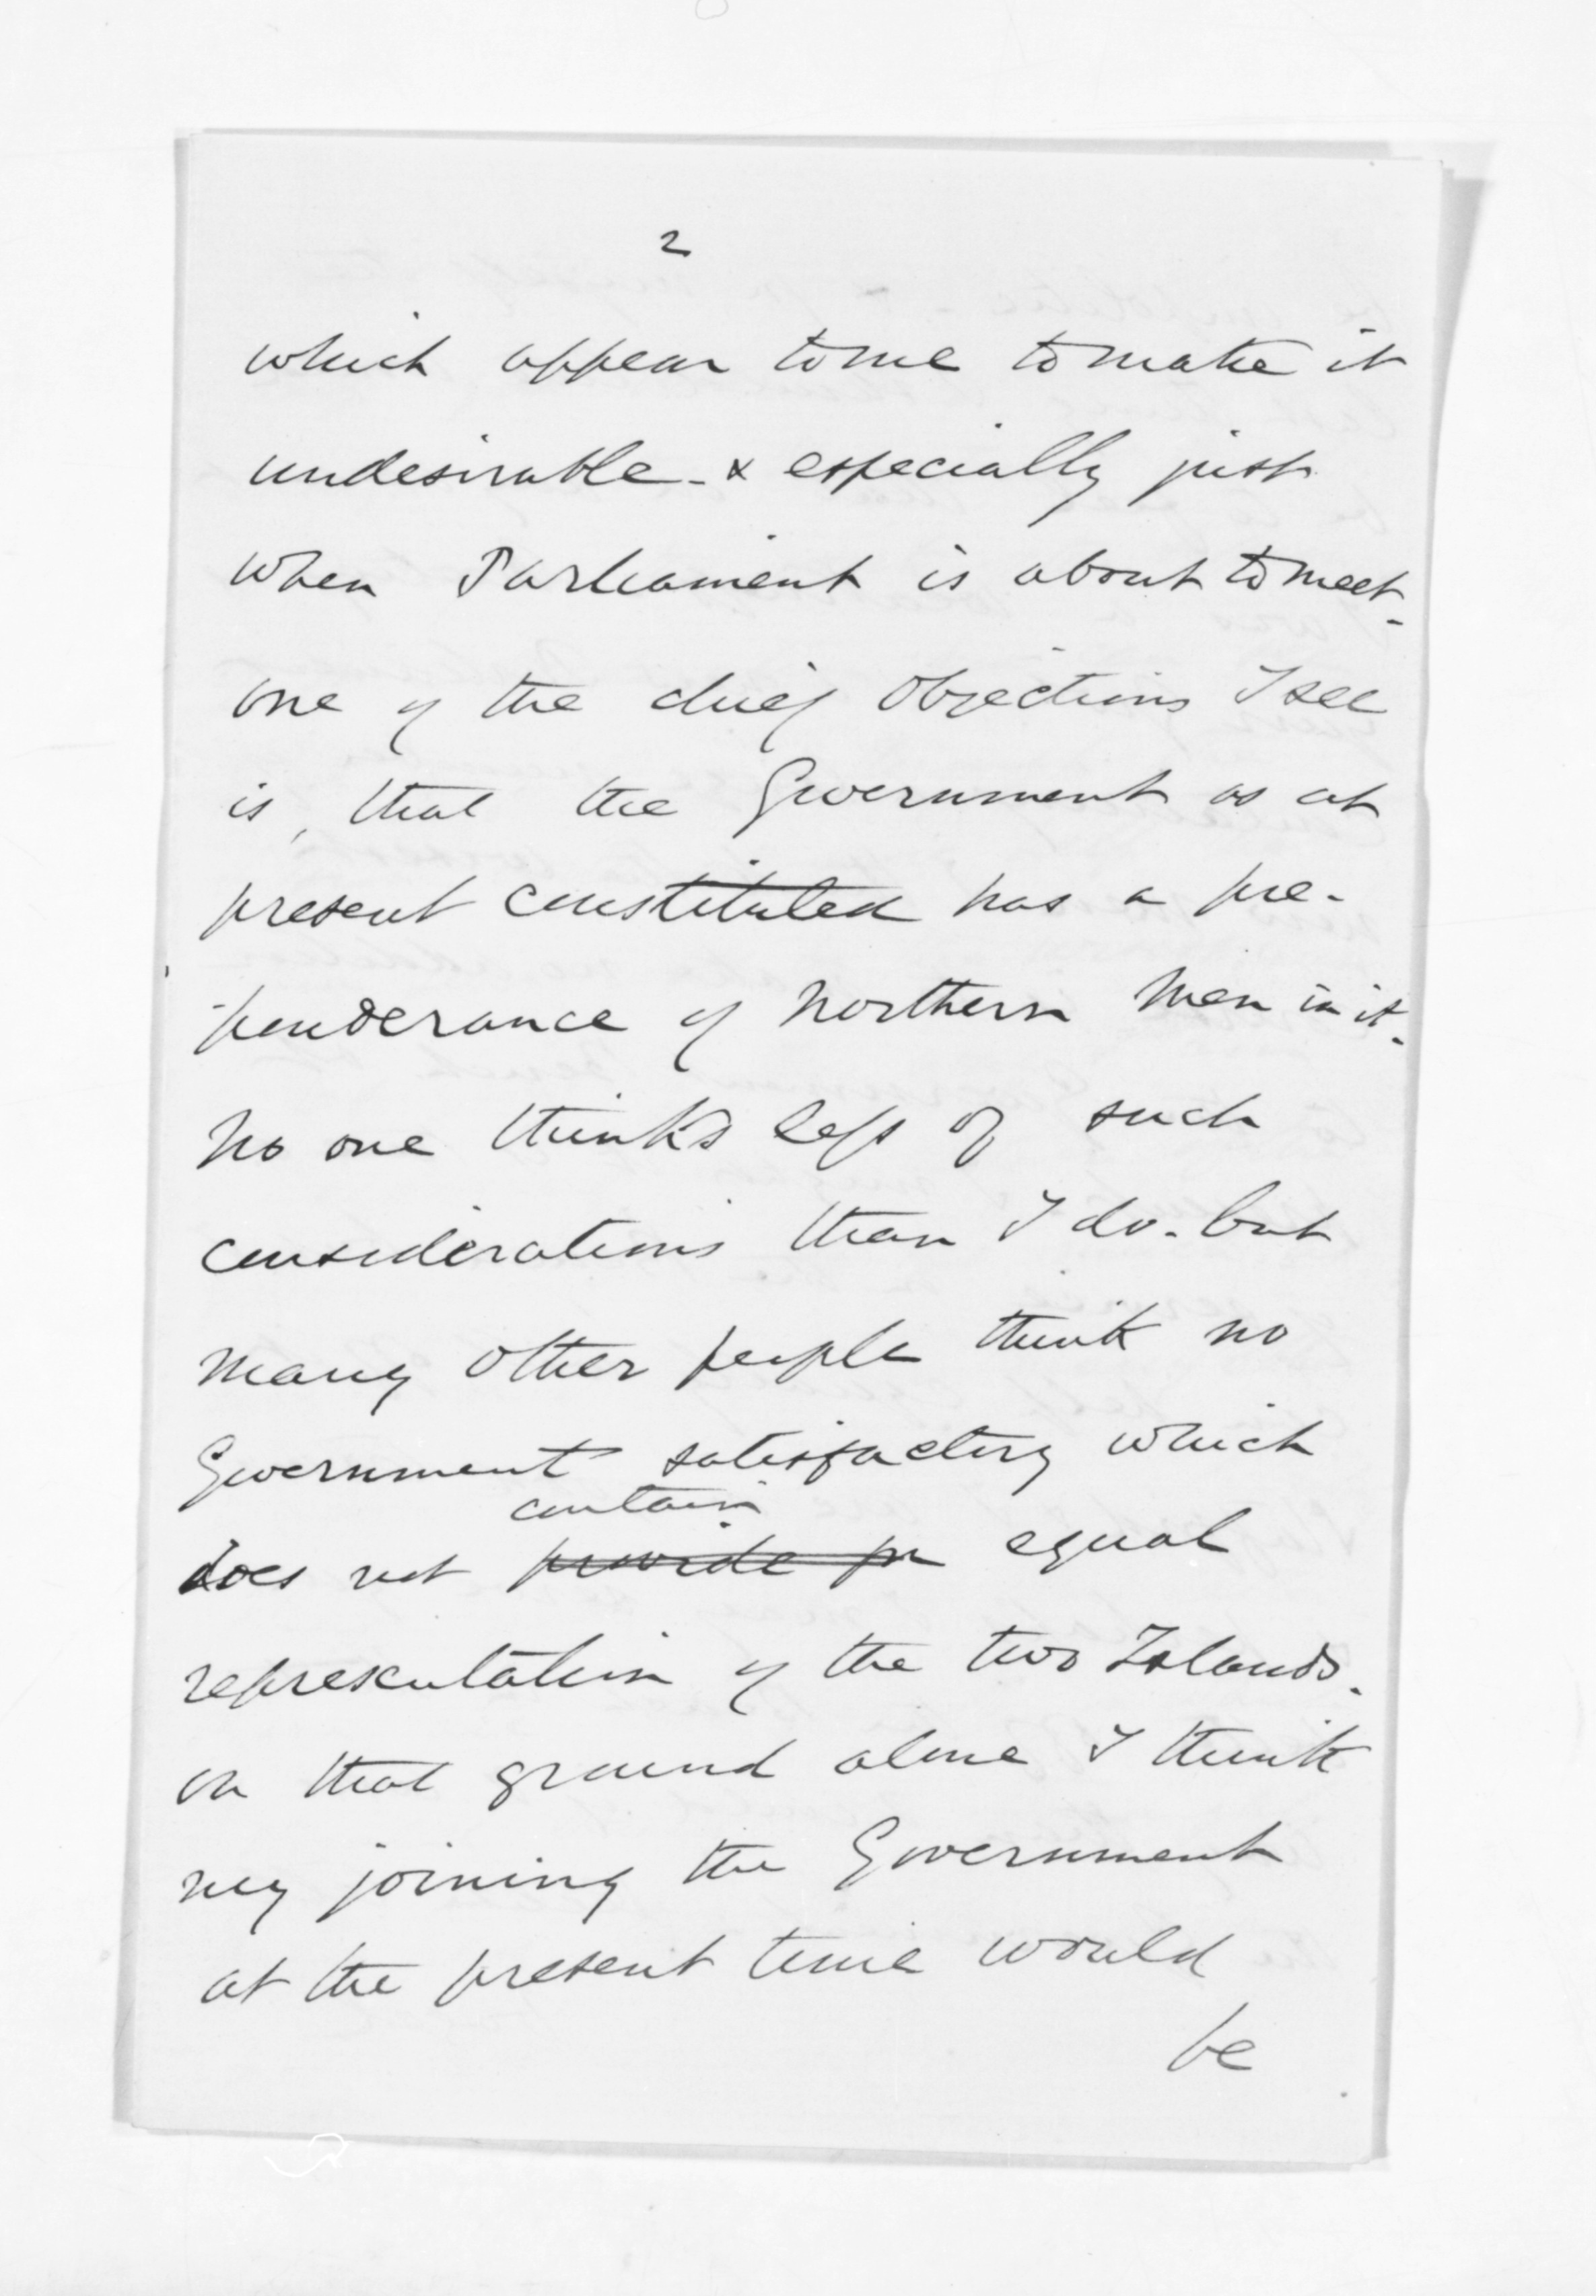 2
which appear to me to make it
undesirable - & especially just
when Parliament is about to meet -
one of the chief objections I see
is, that the Government as at
present constituted has a pre-
-ponderance of Northern men in it.
No one thinks less of such
considerations than I do - but
many other people think no
Government satisfactory which
contain
does not provide for equal
representation of the two Islands.
on that ground alone I think
my joining the Government
at the present time would
be